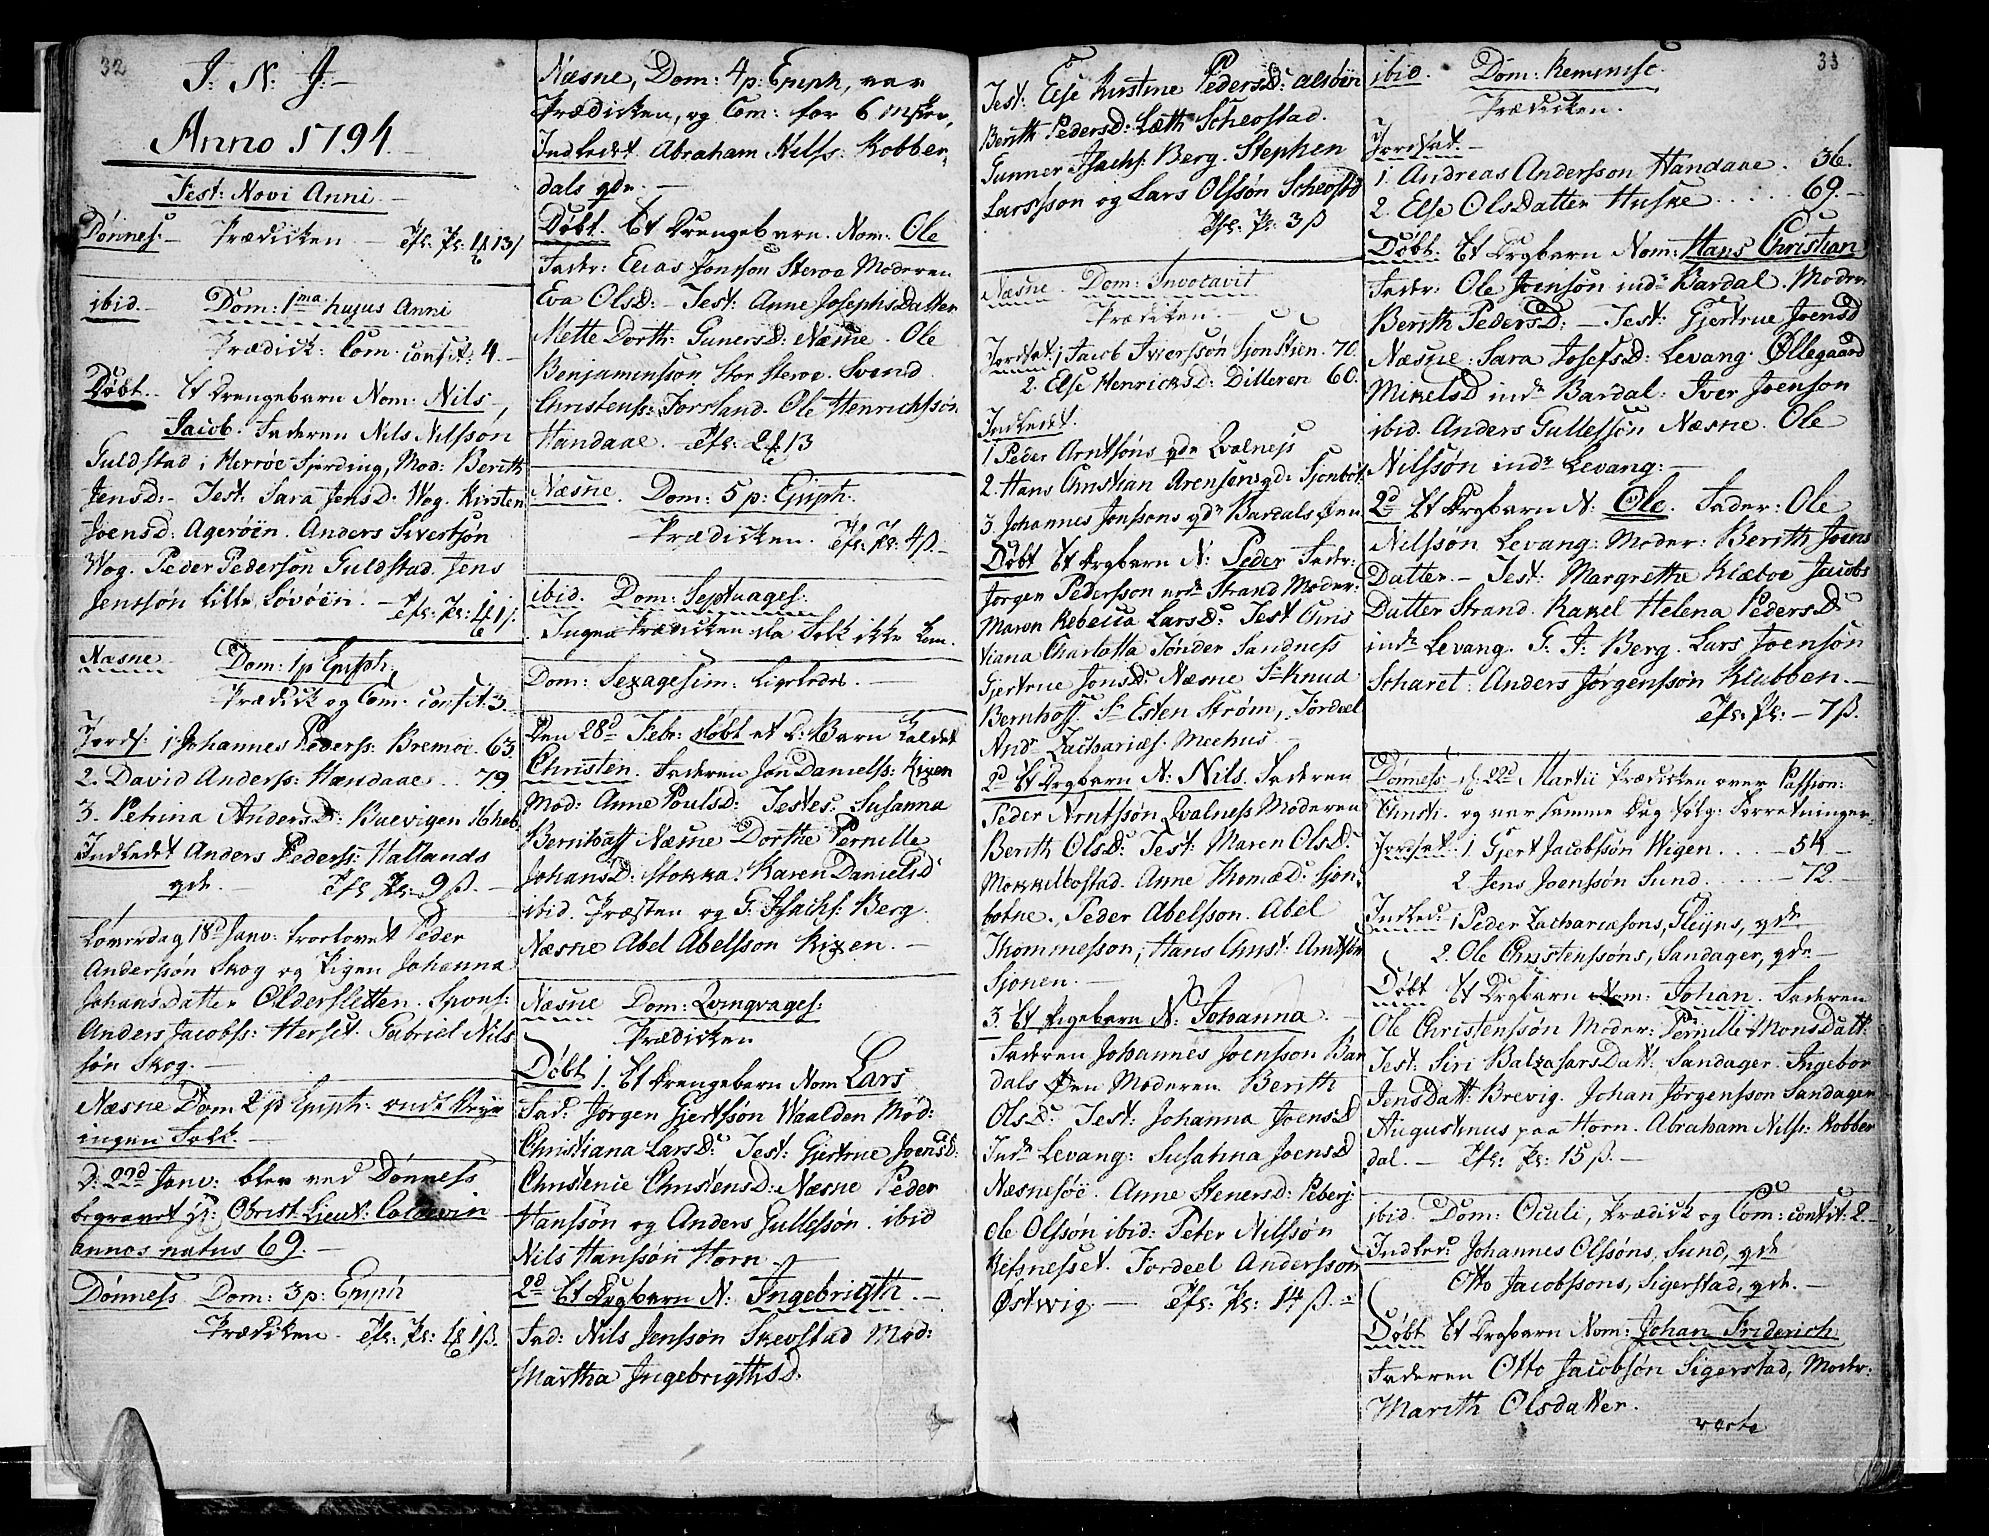 32
I: N: J:
Anno 1794.
Fest: Novi Anni.
Dønnes: Prædicken
ibid. Dom: 1ma hujus Anni
Prædick: Com: confit: 4.
Døbt. Et Drengebarn Nom: Nils
Jacob. Faderen Nils Nilssøn
Guldstad i Herrøe fjerding, Mod: Berith
Jensd: Test: Sara Jensd: Wog. Kirsten
Joensd: Agerøen. Anders Sivertsøn
Wog. Peder Pedersøn Guldstad. Jens
Jenssøn lille Løvøen.
Næsne Dom: 1 p Epiph:
Prædick og Com. confit: 3.
Jords: 1. Johannes Pederss: Bremoe. 63
2. David Anderss: Handaae. 79.
3. Petrina Andersd:
Indledet Anders Pederss: Hallands
qde. 9 ß.
Løverdag 18d Janv: trorlovet Peder
Anderssøn Skog og Pigen Johanna
Johansdatter Oldersletten. Spons:
Anders Jacobss: Herset. Gabriel Nils
søn Skog.
Næsne Dom: 2 p Epiph: ondt Veyr
ingen Folk.
D: 22d Janv: blev ved Dønness
begravet Hr: Obrist Lieut: Coldevin
annos natus 69.
Dønness Dom: 3 p: Epiph
Prædicken.
Næsne, Dom: 4 p: Epiph, var
Prædicken, og Com: for 6
Indledet Abraham Nilss: Kobber,
dals qde.
Døbt. Et Drengebarn. Nom: Ole
Fader: Elias Jonsson Sterva Moderen
Eva Olsd: Test: Anne Josephsdatter
Mette Dorth: Gunersd: Næsne. Ole
Benjaminsson Stor Steroe. Svend
Christenss: Forsland. Ole Henrichssøn
Handaae.
Næsne. Dom: 5 p: Epiph:
Prædicken. 4 ß.
ibid. Dom: Septuages:
Ingen Prædicken da Folk ikke kom.
Dom: Sexagesim: ligeledes.
Den 28d Febr: døbt et D: Barn kaldet
Christen. Faderen Jon Danielss: Kixen
Mod: Anne Poulsd: Testes: Susanna
Bernhoff Næsne Dorthe Pernille
Johansd: Stokka. Karen Danielsd:
ibid. Præsten og G. Isachs: Berg
Næsne Abel Abelsson Kixen.
Næsne Dom: Qvinqvages:
Prædicken
Døbt 1. Et Drengebarn Nom Lars
Fad: Jørgen Gjertssøn Waalden Mod:
Christiana Larsd: Test: Gjertrue Joensd:
Christence Christensd: Næsne Peder
Hanssøn og Anders Gullessøn. ibid
Nils Hanssøn Horn.
2d Et Drgbarn N: Ingebrigth.
Fad: Nils Jenssøn Skeostad Mod:
Martha Ingebrigthsd.
Test: Else Kirstine Pedersd: Alsøen
Berith Pedersd: Læth Scheostad.
Gunner Isachs: Berg. Stephen
Larsson og Lars Olssøn Scheostd
3 ß
Næsne. Dom: Invocavit
Prædiken.
Jordfæt: 1 Jacob Iverssøn Sjonstien. 70.
2. Else Henricksd: Dilleren 60.
Indledet.
1 Peder Arntsøns qde Qvalness
2. Hans Christian Arensens qd:
3. Johannes Jonssons qde Bardals Øen
Døbt Et Drgbarn N: Peder Fader:
Jørgen Pedersson nord Strand Moder:
Maren Rebecca Larsd: Test Chris
tiana Charlotta Tønder Sandness
Gjertrue Jonsd: Næsne Sr Knud
Bernhoff. Sr Esten Strøm, Fordeel
And: Zacharias: Meehus
2d Et Drgbarn N: Nils. Faderen
Peder Arntssøn Qvalness Moderen
Berith Olsd: Test: Maren Olsd:
Mokkelbostad. Anne Thomæd: Sjon,
botne. Peder Abelsson. Abel
Thommesson, Hans Christ: Arntsøn
Sjonen.
3. Et Pigebarn N: Johanna.
Faderen Johannes Joensson Bar
dals Øen Moderen Berith
Olsd: Test: Johanna Joensd
Indr Levang: Susanna Joensd
Næsnesøe. Anne Stenersd:
Ole Olssøn ibid: Peter Nilssøn
Fordeel Andersson
Østwig. 14 ß.
33
ibid. Dom: Reminisc.
Prædicken.
Jordfæt.
1. Andreas Andersson Handaae. 36.
2. Else Olsdatter Husne 69.
Døbt. Et Drgbarn Nom: Hans Christian
Fader: Ole Joensøn indr Bardal. Moder
Berith Pedersd: Test: Gjertrue Joensd
Næsne: Sara Josefsd: Levang. Ollegaard
Mikelsd indr Bardal: Iver Joenson
ibid. Anders Gullessøn Næsne. Ole
Nilssøn indr Levang:
2d Et Drgbarn N: Ole. Fader: Ole
Nilssøn Levang: Moder: Berith Joens
Datter. Test: Margrethe Klæboe Jacobs
Datter Strand. Karel Helena Pedersd
indr Levang. G. I: Berg. Lars Joensøn
Scharet. Anders Jørgenssøn Klubben.
7 ß.
Dønness d. 22d Martii Prædicken over Passion:
Christi. og var samme Dag følg: Forretninger
Jordfæt: 1. Gjert Jacobssøn Wigen. 54
2. Jens Joenssøn Sund. 72.
Indled: 1 Peder Zachariasøns, Fleijns, qde
2. Ole Christenssøns, Sandager, qde.
Døbt Et Drgbarn Nom: Johan. Faderen
Ole Christenssøn Moder: Pernille Monsdatt:
Test: Siri Balzasarsdatt: Sandager. Ingebor
Jensdatt: Brevig. Johan Jørgensson Sandager
Augustinus paa Horn. Abraham Nilss: Kobber
dal. 15 ß.
ibid. Dom: Oculi, Prædick og Com: confit: 2.
Indled: Johannes Olssøns, Sund, qde
Otto Jacobssons, Sigerstad, qde.
Døbt Et Drgbarn Nom: Johan Friderich
Faderen Otto Jacobsøn Sigerstad, Moder:
Marith Olsdatter.
verte